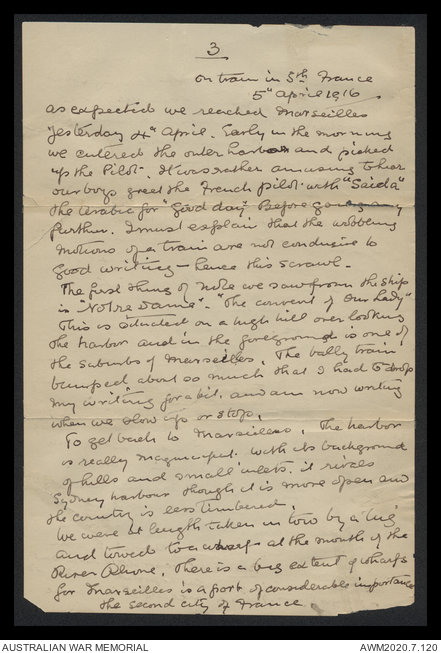 3
on train in Sth France
5th April 1916
as expected we reached Marseilles
yesterday 4th April. Early in the morning
we entered the outer harbor and picked
up the Pilot. It was rather amusing to hear
our boys greet the French pilot with "Saida"
the Arabic for "Good day". Before going any
further. I must explain that the wobbling
motions of a train are not conducive to
good writing – hence this scrawl.
The first thing of note we saw from the ship
is "Notre Dame". "The convent of Our Lady"
This is situated on a high hill over looking
the harbor and in the foreground is one of
the suburbs of Marseilles. The bally train
bumped about so much that I had to drop
my writing for a bit. and am now writing
when we slow up or stop.
To get back to Marseilles. The harbor
is really magnificent. With its background
of hills and small inlets. it rivals
Sydney harbour though it is more open and
the country is less timbered.
We were at length taken in tow by a tug
and towed to a wharf at the mouth of the
River Rhone. There is a big extent of wharfs
for Marseilles is a port of considerable importance
the second city of France
AUSTRALIAN WAR MEMORIAL
AWM2020.7.120